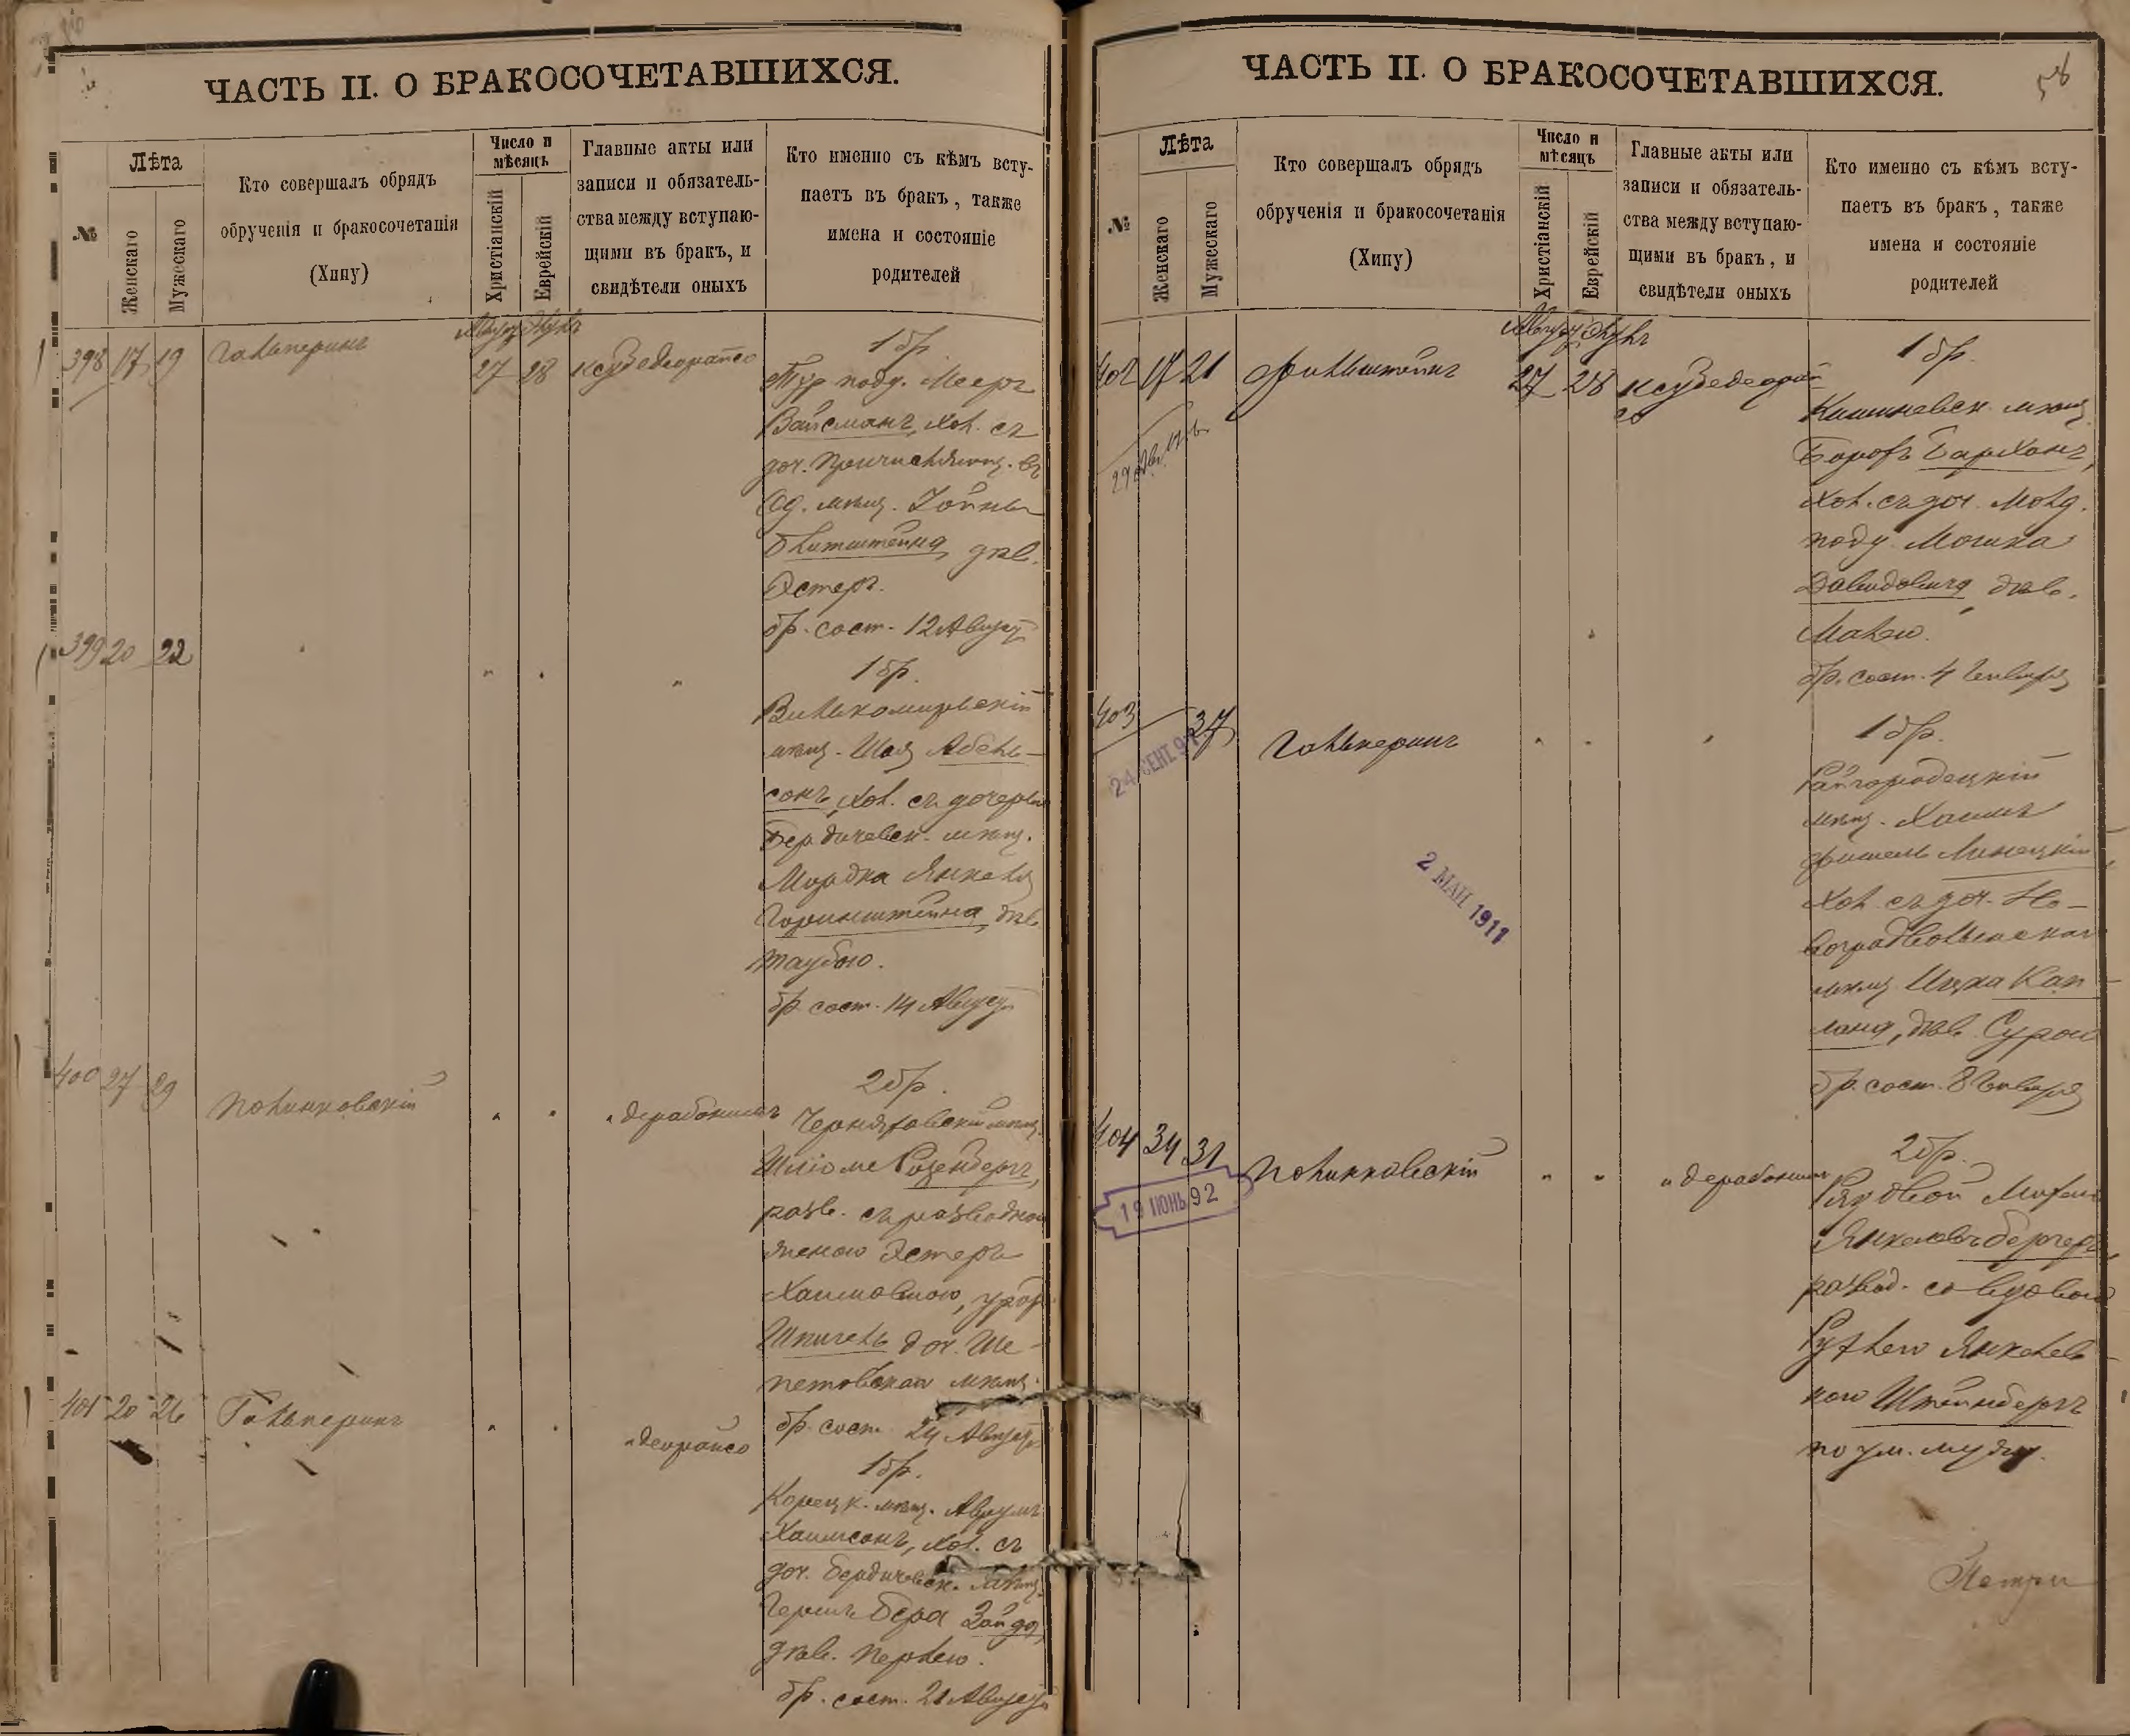 ЧАСТЬ II. О БРАКОСОЧЕТАВШИХСЯ.
№
Лѣта
Женскаго
Мужескаго
Кто совершалъ обрядъ
обрученія и бракосочетанія
(Хипу)
Число и
мѣсяцъ
Христіанскій
Еврейскій
Главные акты или
записи и обязатель-
ства между вступаю-
щими въ бракъ, и
свидѣтели оныхъ
Кто именно съ кѣмъ всту-
паетъ въ бракъ, также
имена и состояніе
родителей
398 17 19 Гальперинъ
27 28
1 бр.
Тур. подд. Мееръ
Вайсманъ, хол. съ
доч. причисляющ. въ
Од. мѣщ. Зойны
Блитштейна дѣв.
Эстеръ.
бр. сост. 12 Август
399 20 22 " " " "
1 бр.
Вилькомирскій
мѣщ. Шая Абель-
сонъ, хол. съ дочерью
Бердичевск. мѣщ.
Мордка Янкеля
Горинштейна, дѣв.
Таубою.
бр. сост. 14 Август
400 27 29 Полинковскій " "
2 бр.
Черняховскій мѣщ.
Шліоме Розенбергъ,
разв. съ разводною
женою Эстеръ
Хаимовною, урож.
Шпигель доч. Ше-
петовскаго мѣщ.
бр. сост. 24 Август
401 20 26 Гальперинъ " " "
1 бр.
Корецк. мѣщ. Аврумъ
Хаимсонъ, хол. съ
доч. Бердичевск. мѣщ.
Герша Бера
дѣв. Перлею.
бр. сост. 21 Август
ЧАСТЬ II. О БРАКОСОЧЕТАВШИХСЯ.
58
№
Лѣта
Женскаго
Мужескаго
Кто совершалъ обрядъ
обрученія и бракосочетанія
(Хипу)
Число и
мѣсяцъ
Христіанскій
Еврейскій
Главные акты или
записи и обязатель-
ства между вступаю-
щими въ бракъ, и
свидѣтели оныхъ
Кто именно съ кѣмъ всту-
паетъ въ бракъ, также
имена и состояніе
родителей
402 17 21
27 28
1 бр.
Кишиневск. мѣщ.
хол. съ доч. Молд.
подд. Мошка
Давидовича дѣв.
Малею.
бр. сост. 4 Января
403 37 Гальперинъ " " "
24 СЕНТ. 9
2 МАЙ 1911
1 бр.
Райгородецкій
мѣщ. Хаимъ
Фишель Линецкій
хол. съ доч. Но-
воградволынскаго
мѣщ. Ицка Кап
лана, дѣв. Сурою
бр. сост. 8 Января
404 34 31 Полинковскій " "
19 ІЮНЬ 92
2 бр.
развод. со вдовою
Рухлею Янкелев
ною Штейнбергъ
по ум. мужу.